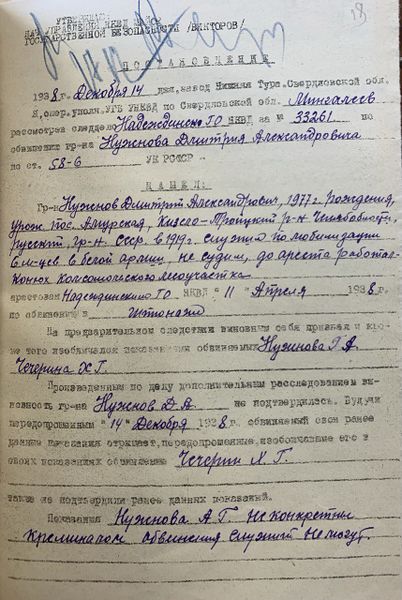 УТВЕРЖДАЮ:
НАЧ УПРАВЛЕНИЯ НКВД МАЙОР
ГОСУДАРСТВЕННОЙ БЕЗОПАСНОСТИ /ВИКТОРОВ/
ПОСТАНОВЛЕНИЕ
1938 г. Декабря 14 дня, завод Нижняя Тура Свердловской обл.
Я, опер. уполн. УГБ УНКВД по Свердловской обл. Мингалеев
рассмотрев следдело Надеждинск ГО НКВД за № 33261 по
обвинению гр-на Нужнова Дмитрия Александровича
по ст. 58-6 УК РСФСР
НАШЕЛ:
Гр-н Нужнов Дмитрий Александрович, 1977 г. рождения,
урож. пос. Амурская, Кизело-Троицкий р-н Челябобласти,
русский, гр-н. СССР. в 1919 г. служил по мобилизации
6 м-цев в белой армии, не судим, до ареста работал
Конюх Комсомольского лесоучастка
арестован Надеждинским ГО НКВД "11" Апреля 1938 г.
по обвинению в шпионаже
На предварительном следствии виновным себя признал и кро-
ме того изобличался показаниями обвиняемых Нужнова Г.А.
Чечерина Х Г.
Произведенным по делу дополнительным расследованием ви-
новность гр-на Нужнов Д.А не подтвердилась. Будучи
передопрошенным "14" Декабря 1938 г. обвиняемый свои ранее
данные показания отрицает, передопрошенные, изобличающие его в
своих показаниях обвиняемые Чечерин Х. Г.
также не подтвердили ранее данных показаний.
Показания Нужнова А.Г. не конкретны
Криминалом обвинения служить не могут.